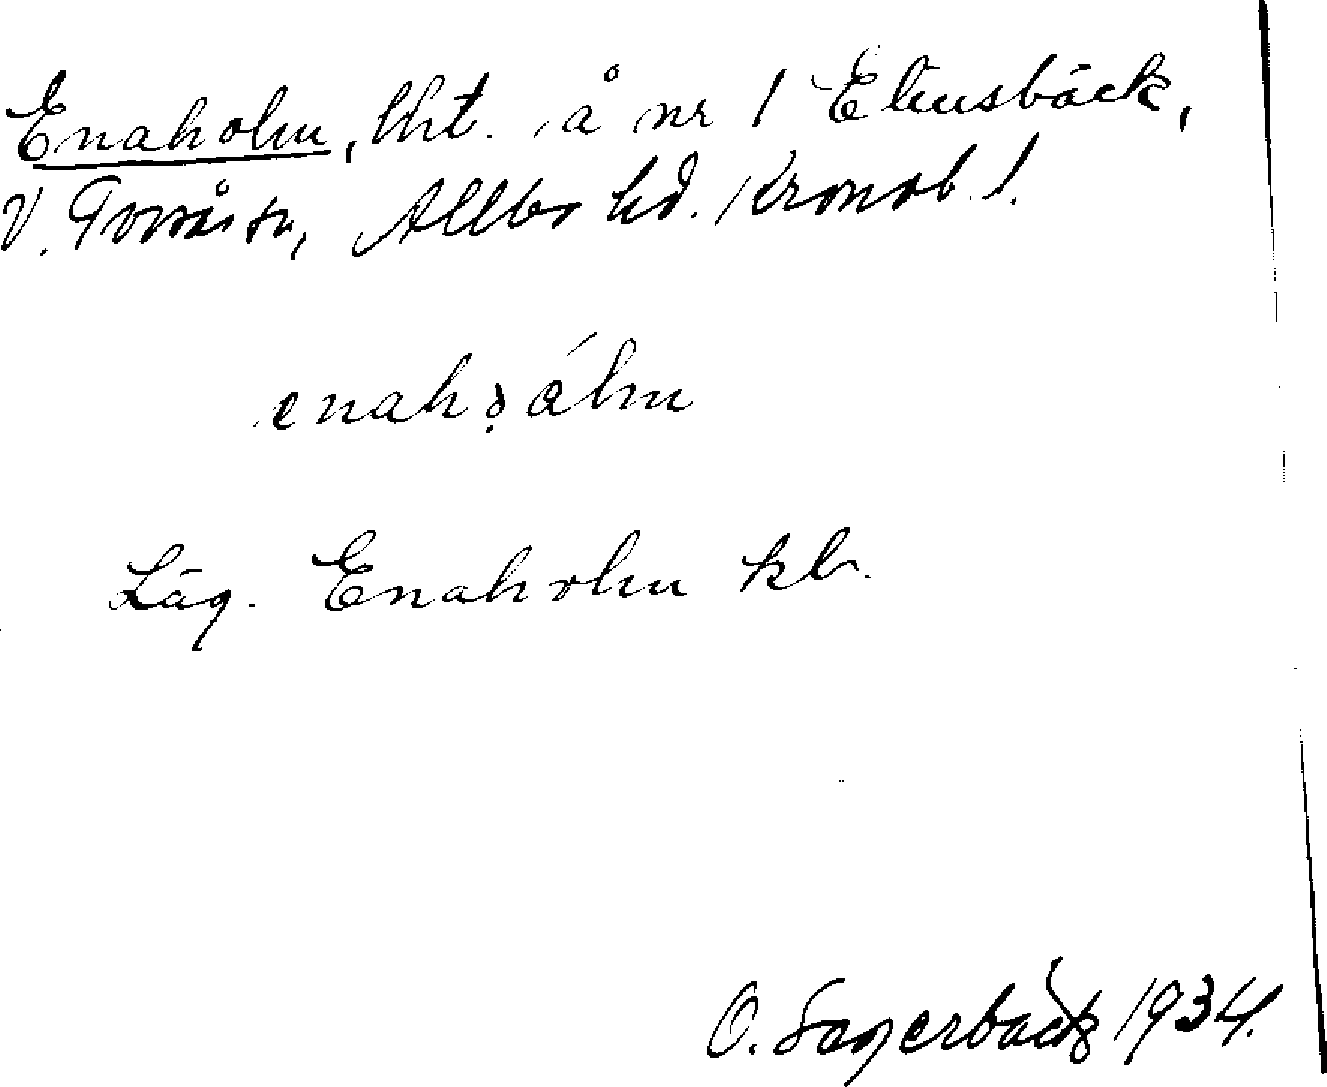 Enaholm, lht. å nr 1 Elmsbäck,
V. Torsås sn, Allbo hd. Kronob. l.
enahɔálm
Läg. Enaholm kb.
O. Sagerbäck 1934.